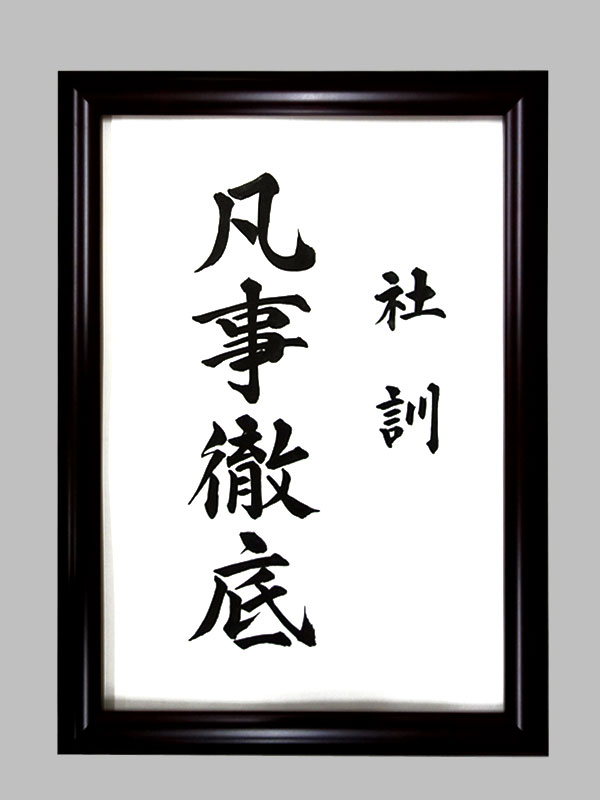 社訓
凡事徹底